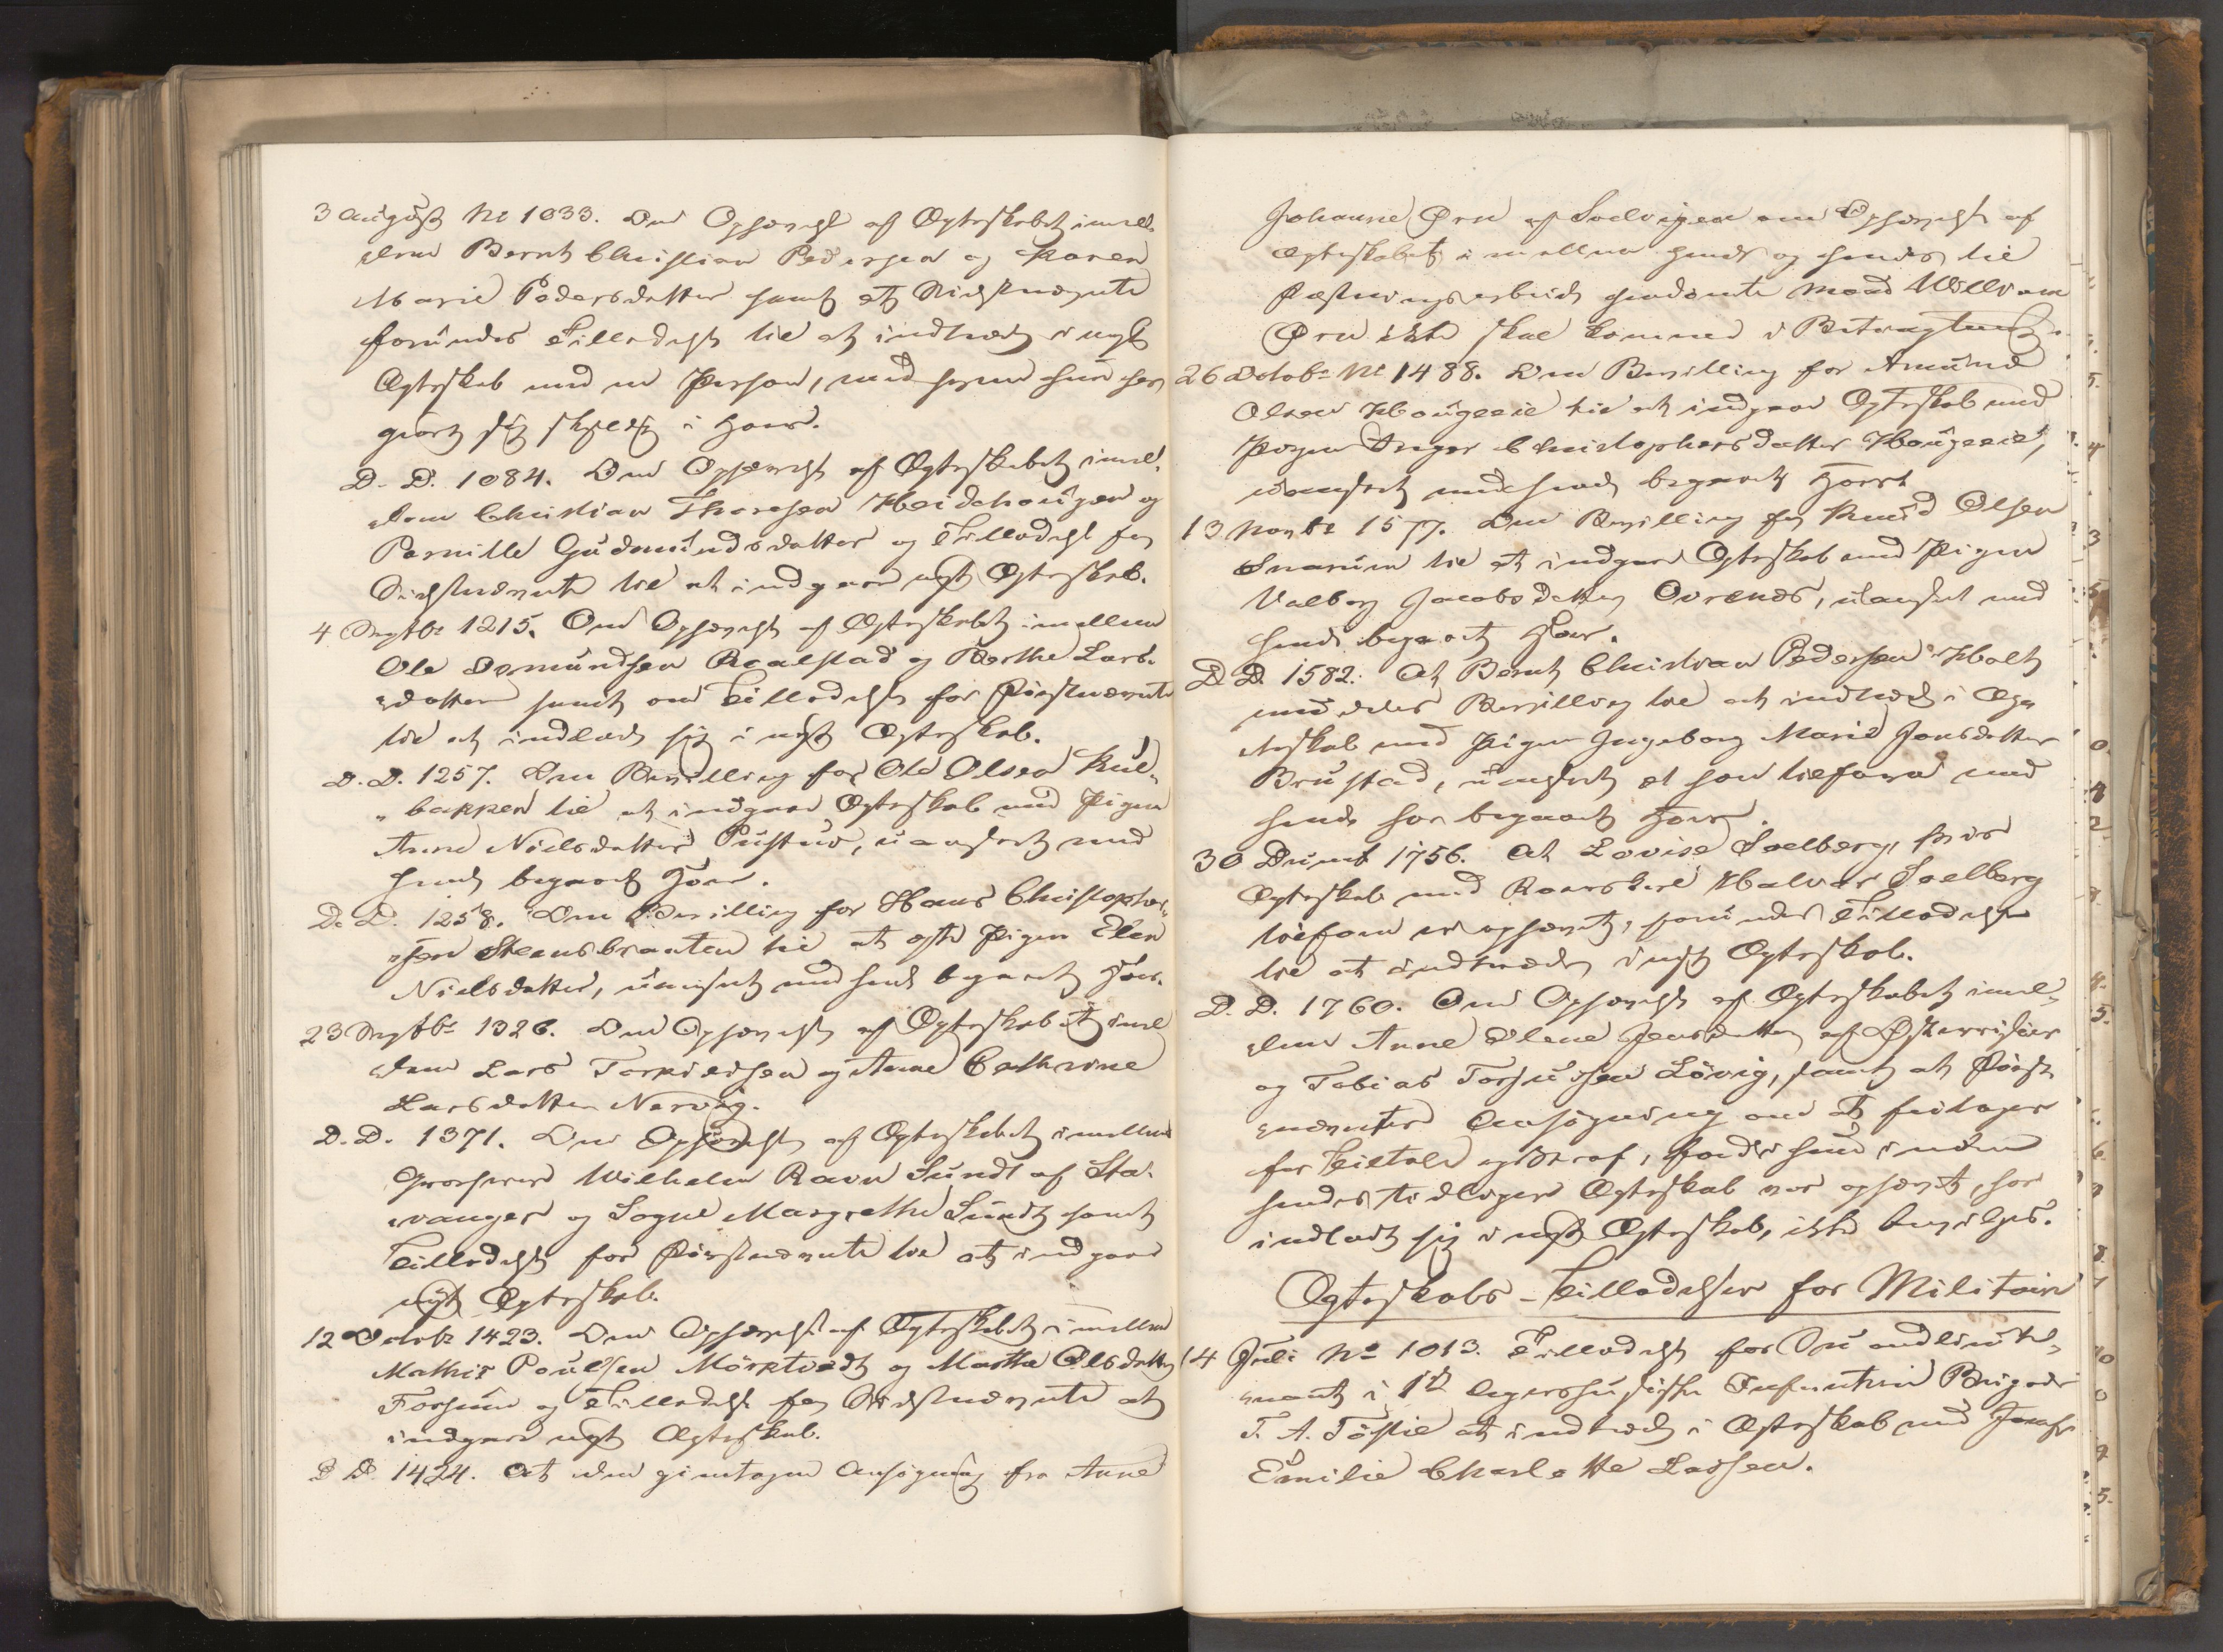 3 August No 1033. Om Ophævelse af Ægteskabet imel-
lem Bernt Christian Pedersen og Karen
Marie Pedersdatter samt at Sidstnævnte
forundes Tilladelse til at indtræde i nyt
Ægteskab med en Person, med hvem hun har
gjort sig skyldig i Hoer.
D. D. 1084. Om Ophævelse af Ægteskabet imel-
lem Christian Thoresen Heidehougen og
Pernille Gudmundsdatter og Tilladelse for
Sidstnævnte til at indgaae nyt Ægteskab.
4 Septbr 1215. Om Ophævelse af Ægteskabet imellem
Ole Osmundsen Roalstad og Berthe Lars-
datter samt om Tilladelse for Førstnævnte
til at indlade sig i nyt Ægteskab.
D. D. 1257. Om Bevilling for Ole Olsen Kul-
bakken til at indgaae Ægteskab med Pigen
Anne Nielsdatter Pustuen, uanseet med
hende begaaet Hoer.
D. D. 1258. Om Bevilling for Hans Christopher-
sen Steensbraaten til at ægte Pigen Elen
Nielsdatter, uanseet med hende begaaet Hoer.
23 Septbr 1326. Om Ophævelse af Ægteskabet imel-
lem Lars Torkildsen og Anne Cathrine
Larsdatter Narvig.
D. D. 1371. Om Ophævelse af Ægteskabet imellem
Grosserer Wilhelm Ravn Sundt af Sta-
vanger og Sogne Margrethe Sundt samt
Tilladelse for Førstnævnte til at indgaae
nyt Ægteskab.
12 Octobr 1423. Om Ophævelse af Ægteskabet imellem
Mathis Poulsen Mörktvedt og Martha Olsdatter
Forsum og Tilladelse for Sidstnævnte at
indgaae nyt Ægteskab.
D D 1424. At den gjentagne Ansøgning fra Anne
Johanne Örn af Soelvigen om Ophævelse af
Ægteskabet imellem hende og hendes til
Fæstningsarbeide hendømte Mand William
Örn ikke skal komme i Betragtning.
26 Octobr No 1488. Om Bevilling for Amund
Olsen Hougerie til at indgaae Ægteskab med
Pigen Inger Christophersdatter Hougerie,
uanseet med hende begaaet Hoer.
13 Novbr 1577. Om Bevilling for Knud Olsen
Snarum til at indgaae Ægteskab med Pigen
Valborg Jacobsdatter Ovrenes, uanseet med
hende begaaet Hoer.
D D. 1582. At Bernt Christian Pedersen Holt
meddeles Bevilling til at indtræde i Æg-
teskab med Pigen Ingeborg Marie Jonsdatter
Brustad, uanseet at han tilforn med
hende har begaaet Hoer.
30 Decemb 1756. At Lovise Soelberg, hvis
Ægteskab med Halvor Soelberg
tilforn er ophævet, forundes Tilladelse
til at indtræde i nyt Ægteskab.
D. D. 1760. Om Ophævelse af Ægteskabet imel-
lem Anne Olene Jensdatter af Østerrisöer
og Tobias Torjussen Lövig, samt at Først-
nævntes Ansøgning om at fritages
for Tiltale og Straf, fordi hun inden
hendes tidligere Ægteskab var ophævet, har
indladt sig i nyt Ægteskab, ikke bevilges.
Ægteskabs-Tilladelser for Militaire
14 Juli No 1013. Tilladelse for Secondlieute-
nant i 1ste Agershusiske Infanterie Brigade
T. A. Töftie at indtræde i Ægteskab med Jomfru
Emilie Charlotte Lassen.